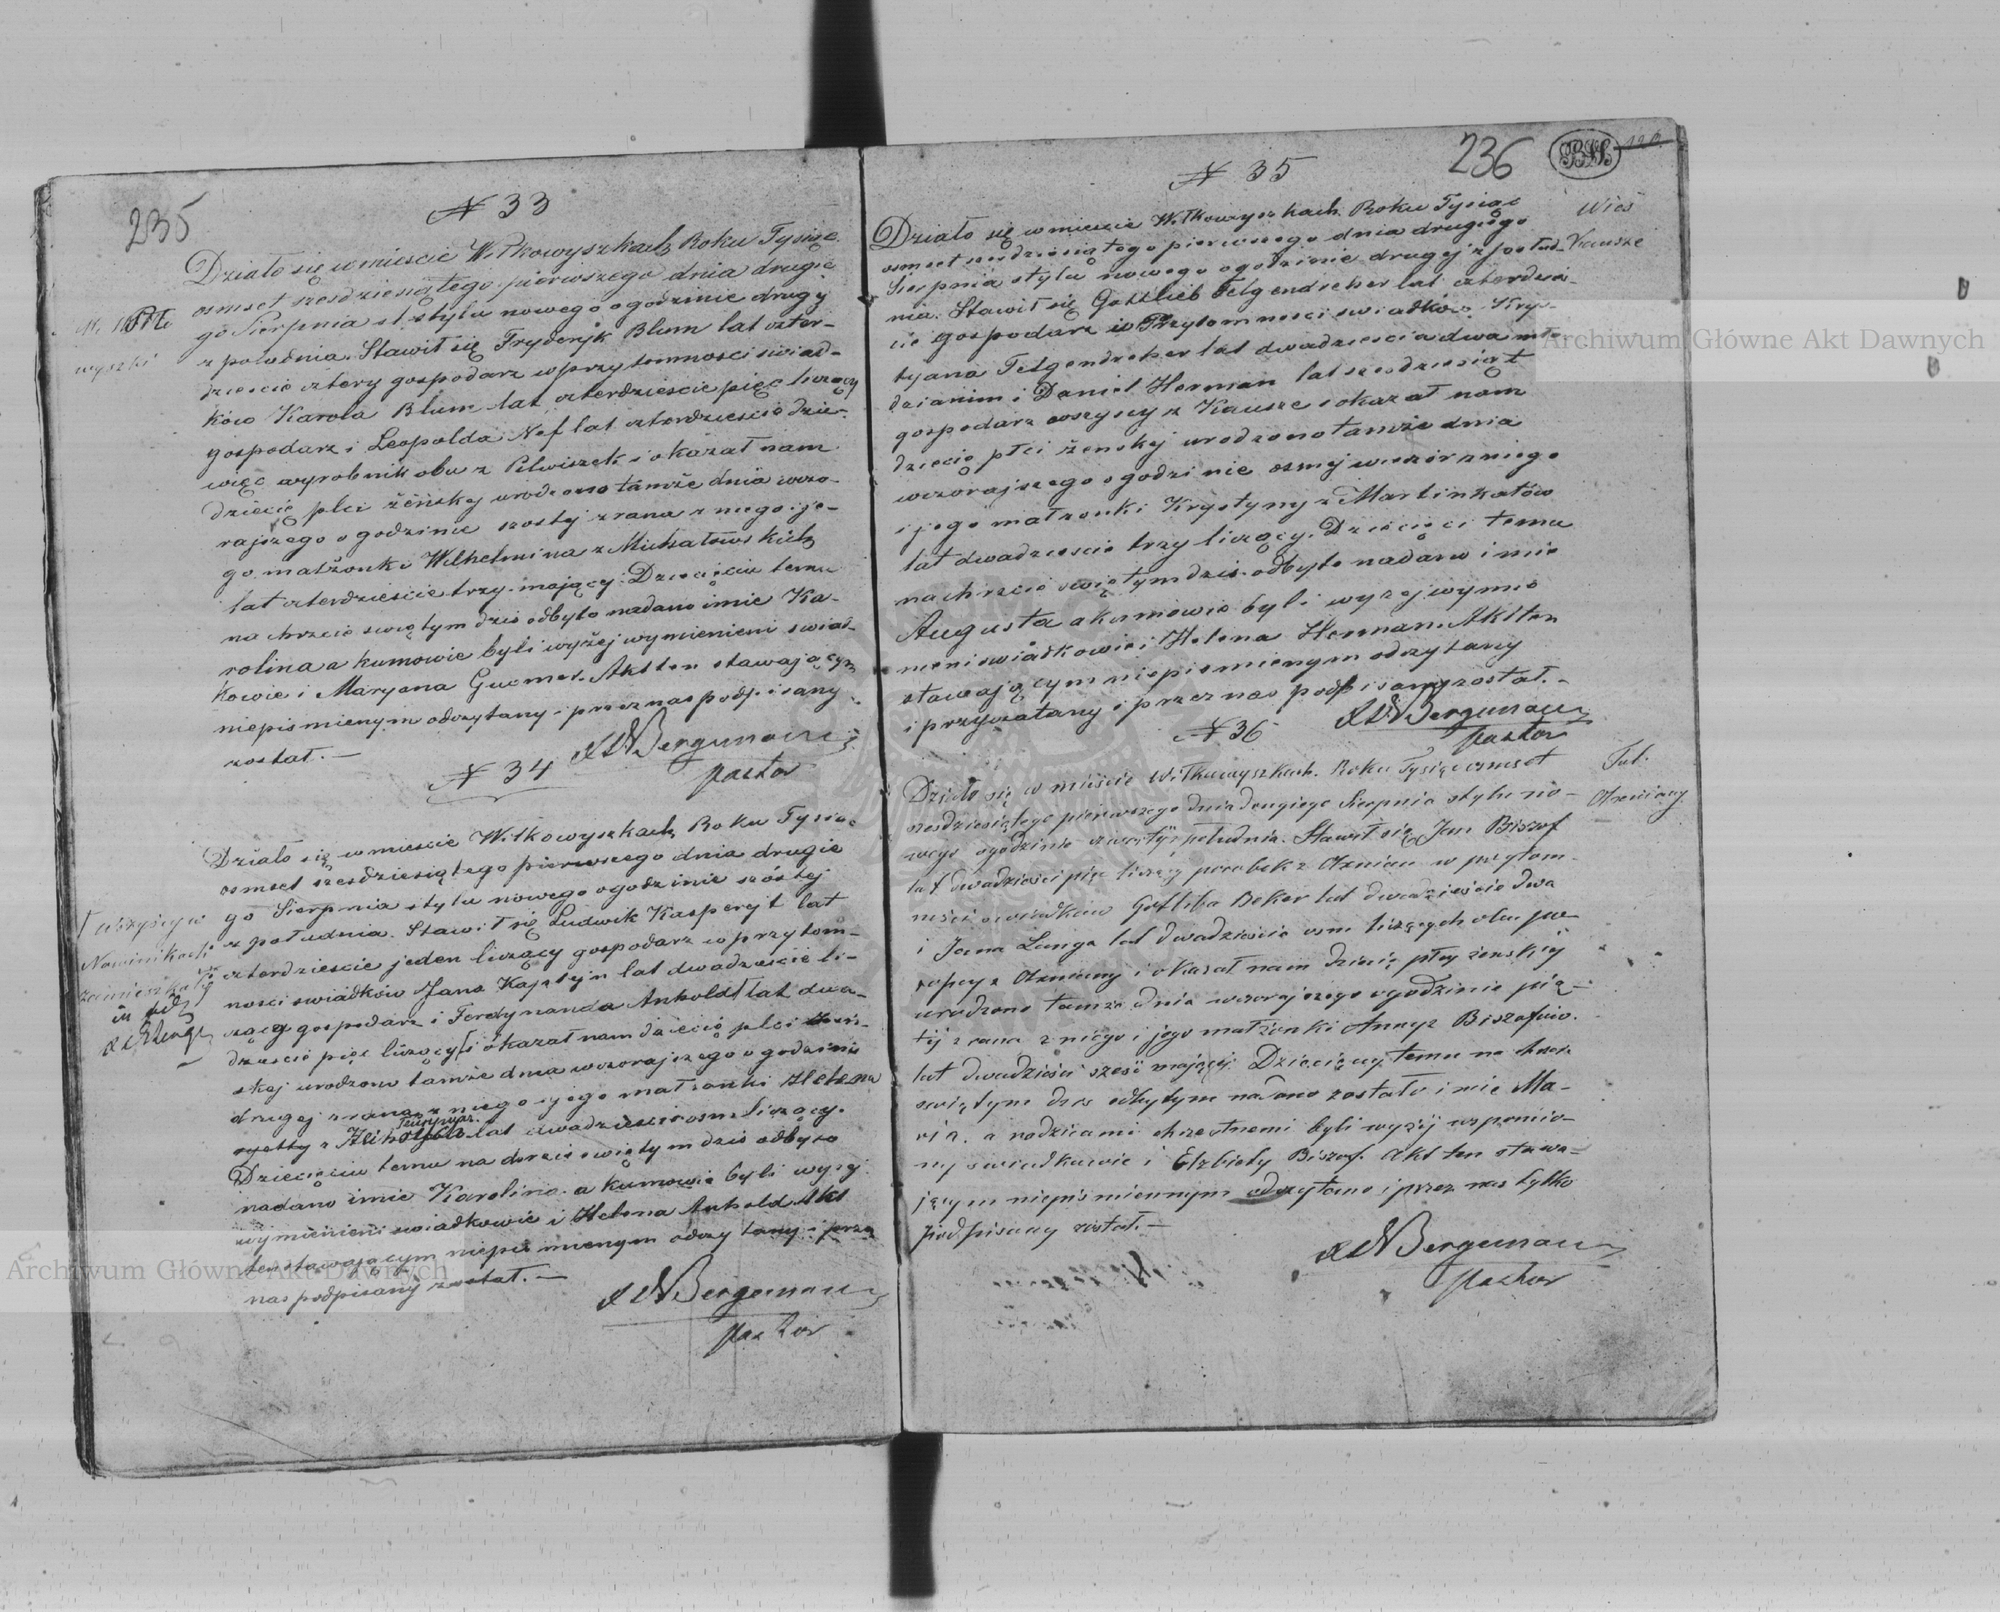 235
N 33
Działo się w mieście Wiłkowyszkach Roku Tysiąc
osmset szesdziesiątego pierwszego dnia drugie
go Sierpnia stylu nowego o godzinie drugy
z południa. Stawił się Fryderyk Blum lat czter-
dzieście cztery gospodarz w przytomności świad-
ków Karola Blum lat czterdzieście pięc liczący
gospodarz i Leopolda Nef lat czterdzieście dzie-
więc wyrobnik obu z Pilwiszek i okazał nam
dziecię płci żeńskey urodzono tamże dnia wczo-
rajszego o godzinie szostej z rana z niego i je-
go małżonki Wilhelmina z Michałowskich
lat czterdzieście trzy mający. Dziecięciu temu
na chrzcie swiętym dziś odbyto nadano imie Ka-
rolina a kumowie byli wyżej wymienieni swiad-
kowie i Maryana Gucmer. Akt ten stawającym
niepismienym odczytany i przez nas podpisany
został. —
Bergmann
pastor
N 34
Działo się w mieście Wiłkowyszkach Roku Tysiąc
osmset szesdziesiątego pierwszego dnia drugie
go Sierpnia stylu nowego o godzinie szóstej
z południa. Stawił się Ludwik Kasperejt lat
czterdzieście jeden liczący gospodarz w przytom-
ności swiadków Jana Kajatyn lat dwadzieście li-
czący gospodarz i Ferdynanda Anholdt lat dwa-
dzieście pięc liczący i okazał nam dziecię płci żeń-
skej urodzono tamże dnia wczorajszego o godzinie
drugej z rana z niego i jego małżonki
lat dwadzieście osm liczący.
Dziecięciu temu na chrzcie swiętym dziś odbyto
nadano imie Karolina a kumowie byli wyżej
wymienieni swiadkowie i Helena Anhold Akt
ten stawającym niepismienym odczytany i przez
nas podpisany został. —
Bergmann
pastor
236
N 35
Wieś
Kausze
Działo się w mieście Wiłkowyszkach Roku Tysiąc
osmset szesdziesiątego pierwszego dnia drugiego
Sierpnia stylu nowego o godzinie drugej z połud-
nia. Stawił się Gottlieb Felgendreher lat czterdzieś-
cie gospodarz w Przytomności swiadków Krys-
tyana Felgendreher lat dwadzieścia dwa mło-
dzianim i Daniel Herman lat szesdziesiąt
gospodarz wszyscy z Kausze i okazał nam
dziecię płci żenskej urodzono tamże dnia
wczorajszego o godzinie osmej wieczór z niego
i jego małzonki Krystyny z Martinkatów
lat dwadzieście trzy liczący. Dziecięci temu
na chrzcie swiętym dzis odbyto nadano imie
Augusta a kumowie byli wyzej wymie
nieni swiadkowie i Helena Herman. Akt ten
stawającym niepismienym odczytany
i przyczatany i przez nas podpisany został. -
Bergmann
pastor
N 36
Działo się w mieście Wiłkowyszkach. Roku Tysiąc osmset
szesdziesiątego pierwszego dnia drugiego Sierpnia stylu no-
wego o godzinie czwartej z południa. Stawił się Jan Biszof
lat dwadzieści pięc liczący parobek z Oźnian w przytom-
ności swiadków Gotliba Beker lat dwadzieście dwa
i Jana Lange lat dwadzieścia osm liczących obu pa-
ropcy z Oźniany i okazał nam dziecię płcy żeńskiej
urodzono tamże dnia wczorajszego o godzinie pią-
tej z rana z niego i jego małżonki Anny z Biszofów.
lat dwadzieści sześć mającej. Dziecięciu temu na chrzcie
swiętym dziś odbytym nadano zostało imie Ma-
ria. a rodzicami chrzestnemi byli wyżej wspomnio-
ny swiadkowie i Elzbiety Biszof. Akt ten stawa-
jącym niepiśmiennym odczytano i przez nas tylko
podpisany został. —
Bergmann
pastor
Archiwum Główne Akt Dawnych
Archiwum Główne Akt Dawnych